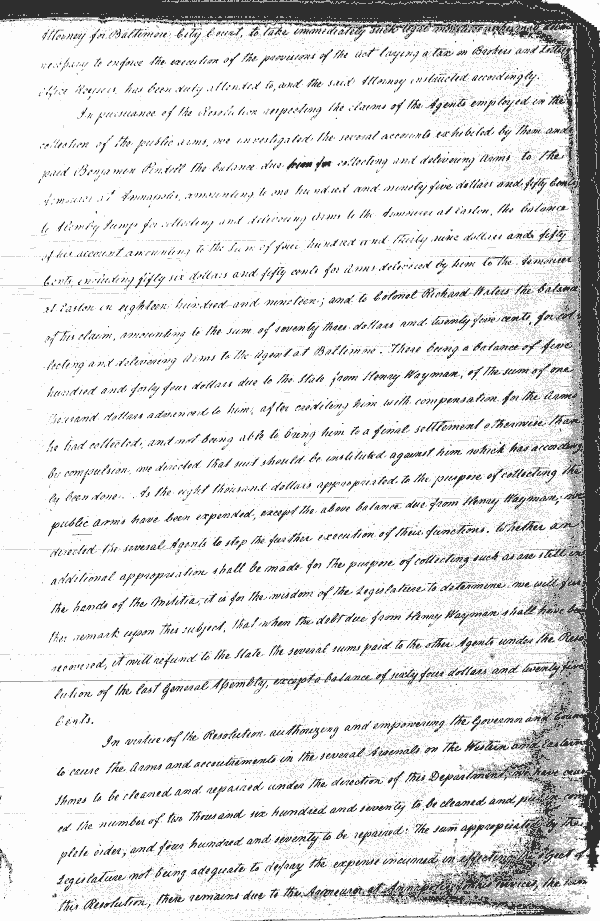 Attorney for Baltimore City Court, to take immediately such legal
necessary to enforce the execution of the provisions of the Act laying a tax on Brokers and lottery
office keepers, has been duly attended to, and the said Attorney instructed accordingly.
In pursuance of the Resolution respecting the claims of the Agents employed in the
collection of the public arms, we investigated the several accounts exhibited by them and
paid Benjamin Pindell the balance due him for collecting and delivering Arms to the
Armourer at Annapolis, amounting to one hundred and ninety five dollars and fifty Cents
to for collecting and delivering arms to the Armourer at Easton, the balance
of his account amounting to the Sum of four hundred and thirty nine dollars and fifty
Cents, including fifty six dollars and fifty cents for Arms delivered by him to the Armourer
at Easton in eighteen hundred and nineteen; and to Colonel Richard Waters the balance
of his claim, amounting to the sum of seventy three dollars and twenty five cents, for col
lecting and delivering Arms to the Agent at Baltimore. There being a balance of five
hundred and forty four dollars due to the State from Henry Wayman, of the sum of one
thousand dollars advanced to him, after crediting him with compensation for the Arms
he had collected, and not being able to bring him to a final settlement otherwise than
by compulsion, we directed that suit should be instituted against him which has according
ly been done. As the eight thousand dollars appropriated to the purpose of collecting the
public arms have been expended, except the above balance due from Henry Wayman, we
directed the several Agents to stop the further execution of their functions. Whether an
additional appropriation shall be made for the purpose of collecting such as are still in
the hands of the Militia, it is for the wisdom of the Legislature to determine. we will fur
ther remark upon this subject, that when the debt due from Henry Wayman shall have been
recovered, it will refund to the State the several sums paid to the other Agents under the Reso
lution of the last General Assembly, except a balance of sixty four dollars and twenty five
Cents.
In virtue of the Resolution authorizing and empowering the Governor and Council
to cause the Arms and accoutrements in the several Arsenals on the Western and Eastern
shores to be cleaned and repaired under the direction of this Department, We have caus
ed the number of two thousand six hundred and seventy to be cleaned and put in com
plete order, and four hundred and seventy to be repaired: The sum appropriated by the
Legislature not being adequate to defray the expense incurred in effecting the object of
this Resolution, there remains due to the Armourer at Annapolis services, the sum